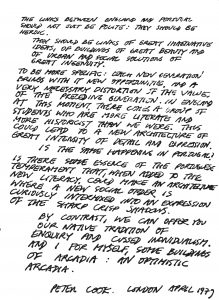 THE LINKS BETWEEN ENGLAND AND PORTUGAL
SHOULD NOT JUST BE POLITE: THEY SHOULD BE
HEROIC.
THEY SHOULD BE LINKS OF GREAT IMAGINATIVE
IDEAS, OF BUILDINGS OF GREAT BEAUTY AND
OF URBAN AND SOCIAL SOLUTIONS OF
GREAT INGENUITY.
TO BE MORE SPECIFIC: EACH NEW GENERATION
ARISES WITH IT NEW OPPORTUNITIES, AND A
VERY NECESSARY DISTORTION OF THE VALUES
OF THE PRECEDING GENERATION. IN ENGLAND
AT THIS MOMENT, THERE COULD BE GROUP OF
STUDENTS WHO ARE MORE LITERATE AND
MORE HISTORICIST THAN WE WERE. THIS
COULD LEAD TO A NEW ARCHITECTURE OF
GREAT INTENSITY OF DETAIL AND EXPRESSION.
IS THE SAME HAPPENING IN PORTUGAL?
IS THERE SOME ESSENCE OF THE PORTUGUESE
TEMPERAMENT THAT, WHEN ADDED TO THE
NEW LITERACY, COULD MAKE AN ARCHITECTURE
WHERE A NEW SOCIAL ORDER IS
CURIOUSLY INTERWOVEN INTO AN EXPRESSION
OF THE SHARP CRISP SHADOWS.
BY CONTRAST, WE CAN OFFER YOU
OUR NATIVE TRADITION OF
ENQUIRY AND CUSSED INDIVIDUALISM.
AND I FOR MYSELF SOME BUILDINGS
OF ARCADIA: AN OPTIMISTIC
ARCADIA.
PETER COOK. LONDON APRIL 1977